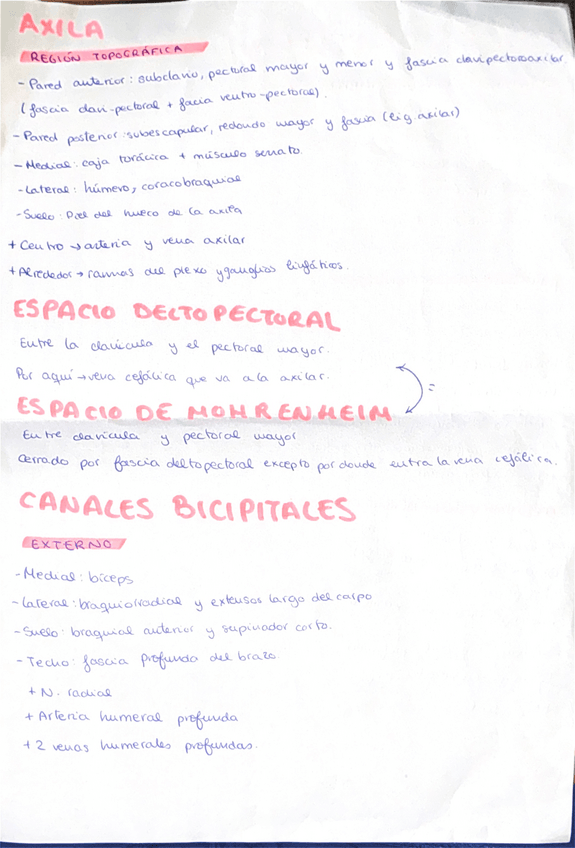 AXILA
REGIÓN TOPOGRÁFICA
- Pared anterior: subclavio, pectoral mayor y menor y fascia clavipectoroaxilar
(fascia clavi-pectoral + facia ventro-pectoral).
- Pared posterior: subescapular, redondo mayor y fascia (lig. axilar)
- Medial: caja torácica + músculo serrato.
- Lateral: húmero, coracobraquial
- Suelo: Piel del hueco de la axila
+ Centro → arteria y vena axilar
+ Alrededor → ramas del plexo y ganglios linfáticos.
ESPACIO DELTOPECTORAL
Entre la clavícula y el pectoral mayor.
Por aquí → vena cefálica que va a la axilar.
=
ESPACIO DE MOHRENHEIM
Entre clavícula y pectoral mayor
Cerrado por fascia deltopectoral excepto por donde entra la vena cefálica.
CANALES BICIPITALES
EXTERNO
- Medial: bíceps
- Lateral: braquiorradial y extensos largo del carpo
- Suelo: braquial anterior y supinador corto.
- Techo: fascia profunda del brazo.
+ N. radial
+ Arteria humeral profunda
+ 2 venas humerales profundas.